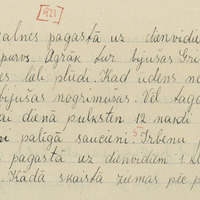 921
kalnes pagastā uz dienvidu
purvs. Agrāk tur bijušas Gru
es lali plūdi. Kad ūdens no
bijušas nogrimušas. Vēl taga
ai dienā pulksten 12 naktī
palīgā saucieni. 5 Irbenu
pagastā uz dienvidiem 1. kl
. Kādā skaistā ziemas pēc p